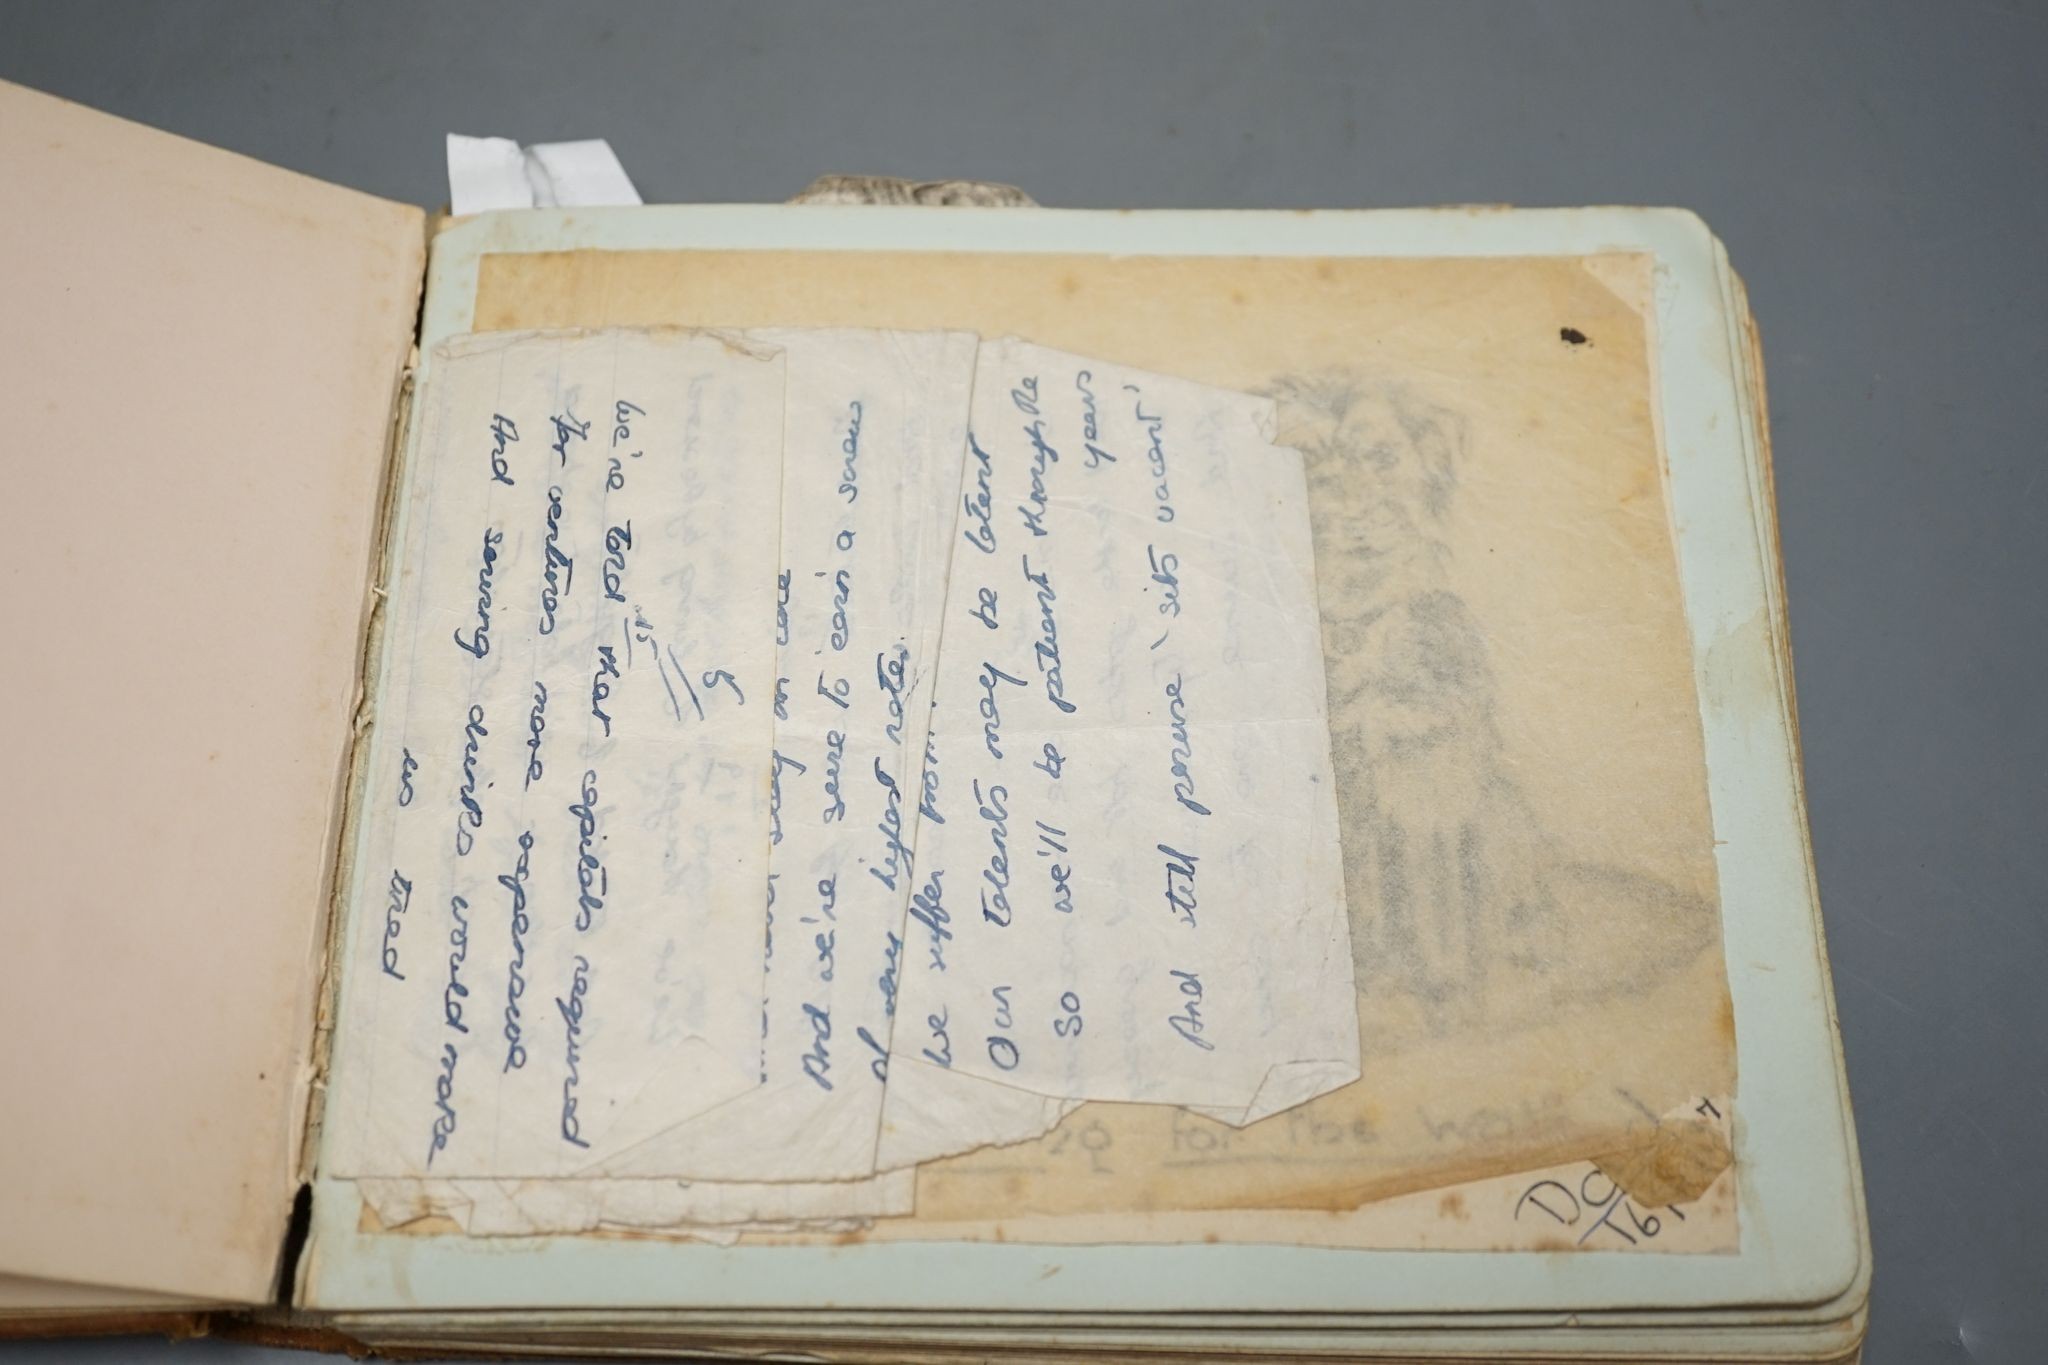 We're told that capitals required
for ventures more expensive
And serving drinks would make
us tired
And we're sure to earn a screw
Of very highest rate.
We suffer
Our talents may be latent
So we'll be patient through the
years
And still peruse 'sits vacant'
for the